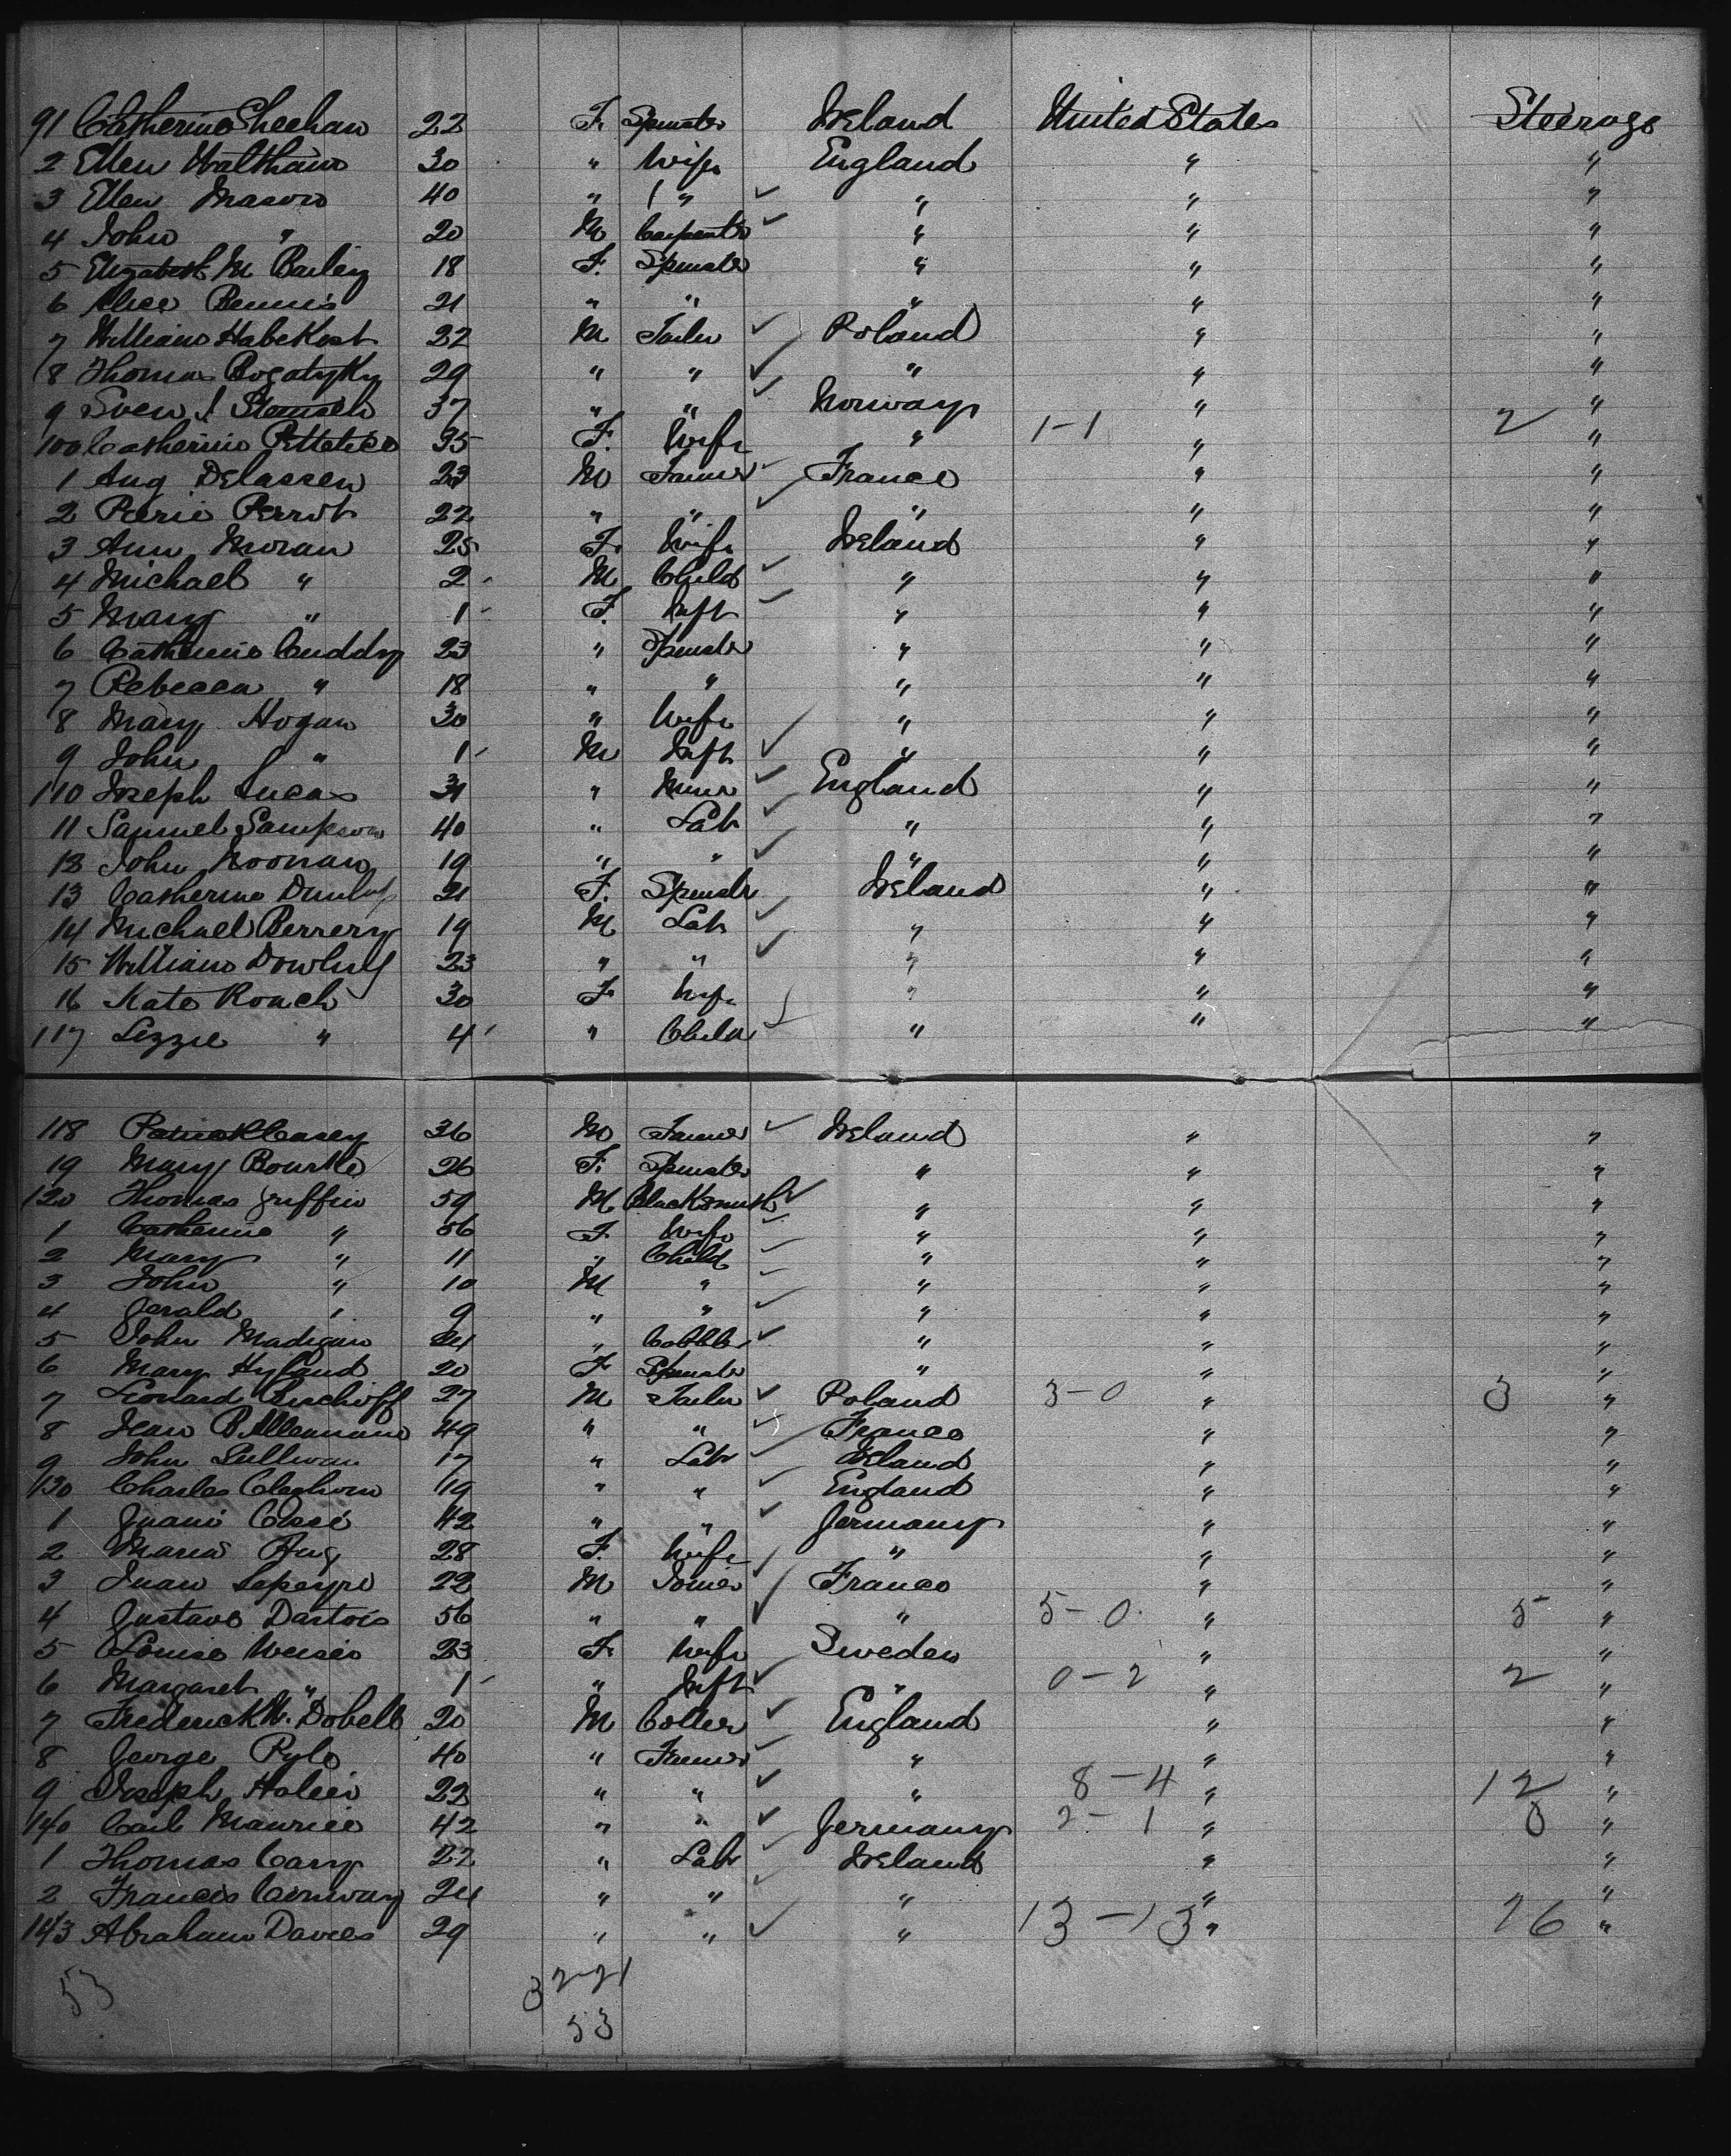 91 Catherine Sheehan 22 F. Spinster Ireland United States Steerage
2 Ellen Waltham 30 " Wife England " "
3 Ellen Mason 40 " " " " "
4 John " 20 M Carpenter " " "
5 Elizabeth M Bailey 18 F. Spinster " " "
6 Alice Bennis 21 " " " " "
7 William Habekost 22 M Tailor Poland " "
8 Thomas Bogatyky 29 " " " " "
9 Sven J 37 " " Norway " "
100 Catherine 35 F. Wife " 1-1 " 2 "
1 Aug Delassen 23 M Farmer France " "
2 Perrot 22 " " " " "
3 Ann Moran 25 F. Wife Ireland " "
4 Michael " 2 M Child " " "
5 Mary " 1 F. Inft " " "
6 Catherine Cuddy 23 " Spinster " " "
7 Rebecca " 18 " " " " "
8 Mary Hogan 30 " Wife " " "
9 John " 1 M Inft " " "
110 Joseph Lucas 31 " Miner England " "
11 Samuel Sampson 40 " Labr " " "
12 John Noonan 19 " " " " "
13 Catherine Dunlop 21 F. Spinster Ireland " "
14 Michael 19 M Labr " " "
15 William Dowling 23 " " " " "
16 Kate Roach 30 F Wife " " "
117 Lizzie " 4 " Child " " "
118 Patrick Casey 36 M Farmer Ireland " "
19 Mary Bourke 26 F. Spinster " " "
120 Thomas Griffin 59 M Blacksmith " " "
1 Catherine " 56 F. Wife " " "
2 Mary " 11 " Child " " "
3 John " 10 M " " " "
4 Gerald " 9 " " " " "
5 John Madigan 24 " Cobbler " " "
6 Mary Hyland 20 F Spinster " " "
7 Leonard 27 M Tailor Poland 3-0 " 3 "
8 Jean 49 " " France " "
9 John Sullivan 17 " Labr Ireland " "
130 Charles Cleghorn 19 " " England " "
1 42 " " Germany " "
2 Maria Aug 28 F. Wife " " "
3 Juan Lapeyre 22 M Joiner France " "
4 Gustave Dartois 56 " " " 5-0 " 5 "
5 Louise 23 F. Wife Sweden " "
6 Margaret " 1 " Inft " 0-2 " 2 "
7 Frederick W. Dobell 20 M England " "
8 George Pyle 40 " Farmer " " "
9 Joseph 22 " " " 8-4 " 12 "
140 Carl Maurice 42 " " Germany 2-1 " "
1 Thomas Cary 22 " Labr Ireland " "
2 Francis Conway 24 " " " " "
143 Abraham Davies 29 " " " 13-13 " 26 "
53 32-21
53